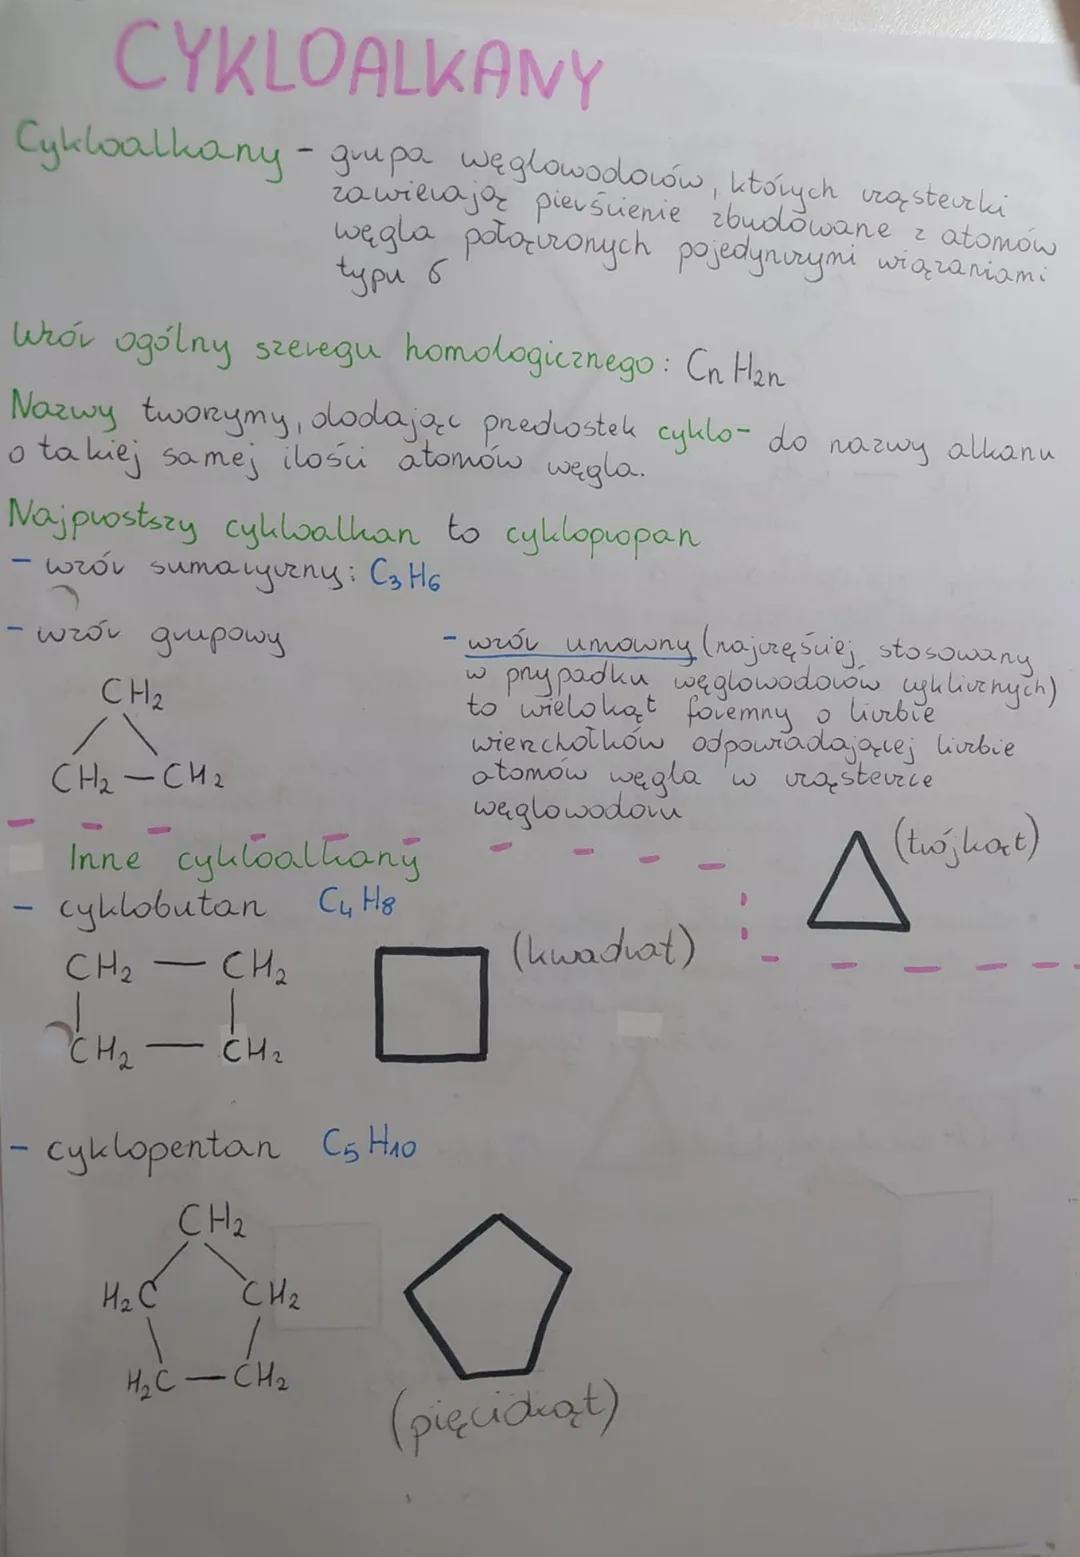 CYKLOALKANY
Cykloalkany - grupa węglowodorów, których cząsteczki
zawierają pierścienie zbudowane z atomów
węgla połączonych pojedynczymi wiązaniami
typu б
Wzór ogólny szeregu homologicznego: CnH2n
Nazwy tworzymy, dodając przedrostek cyklo- do nazwy alkanu
o takiej samej ilości atomów węgla.
Najprostszy cykloalkan to cyklopropan
- wzór sumaryczny: C3H6
- wzór grupowy
CH2
CH2 - CH2
- wzór umowny (najczęściej stosowany
w przypadku węglowodorów cyklicznych)
to wielokąt foremny o liczbie
wierzchołków odpowiadającej liczbie
atomów węgla w cząsteczce
węglowodoru
(trójkąt)
Inne cykloalkany
- cyklobutan C4H8
CH2 - CH2
CH2 - CH2
(kwadrat)
- cyklopentan C5H10
CH2
H2C CH2
H2C - CH2
(pięciokąt)